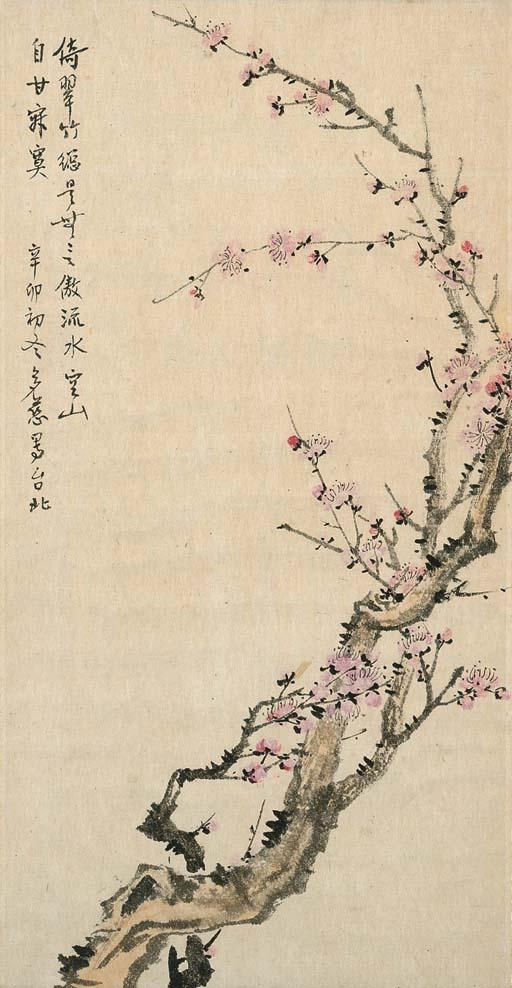 倚翠竹總是無言傲流水空山
自甘寂寞 辛卯初冬多慈寫台北